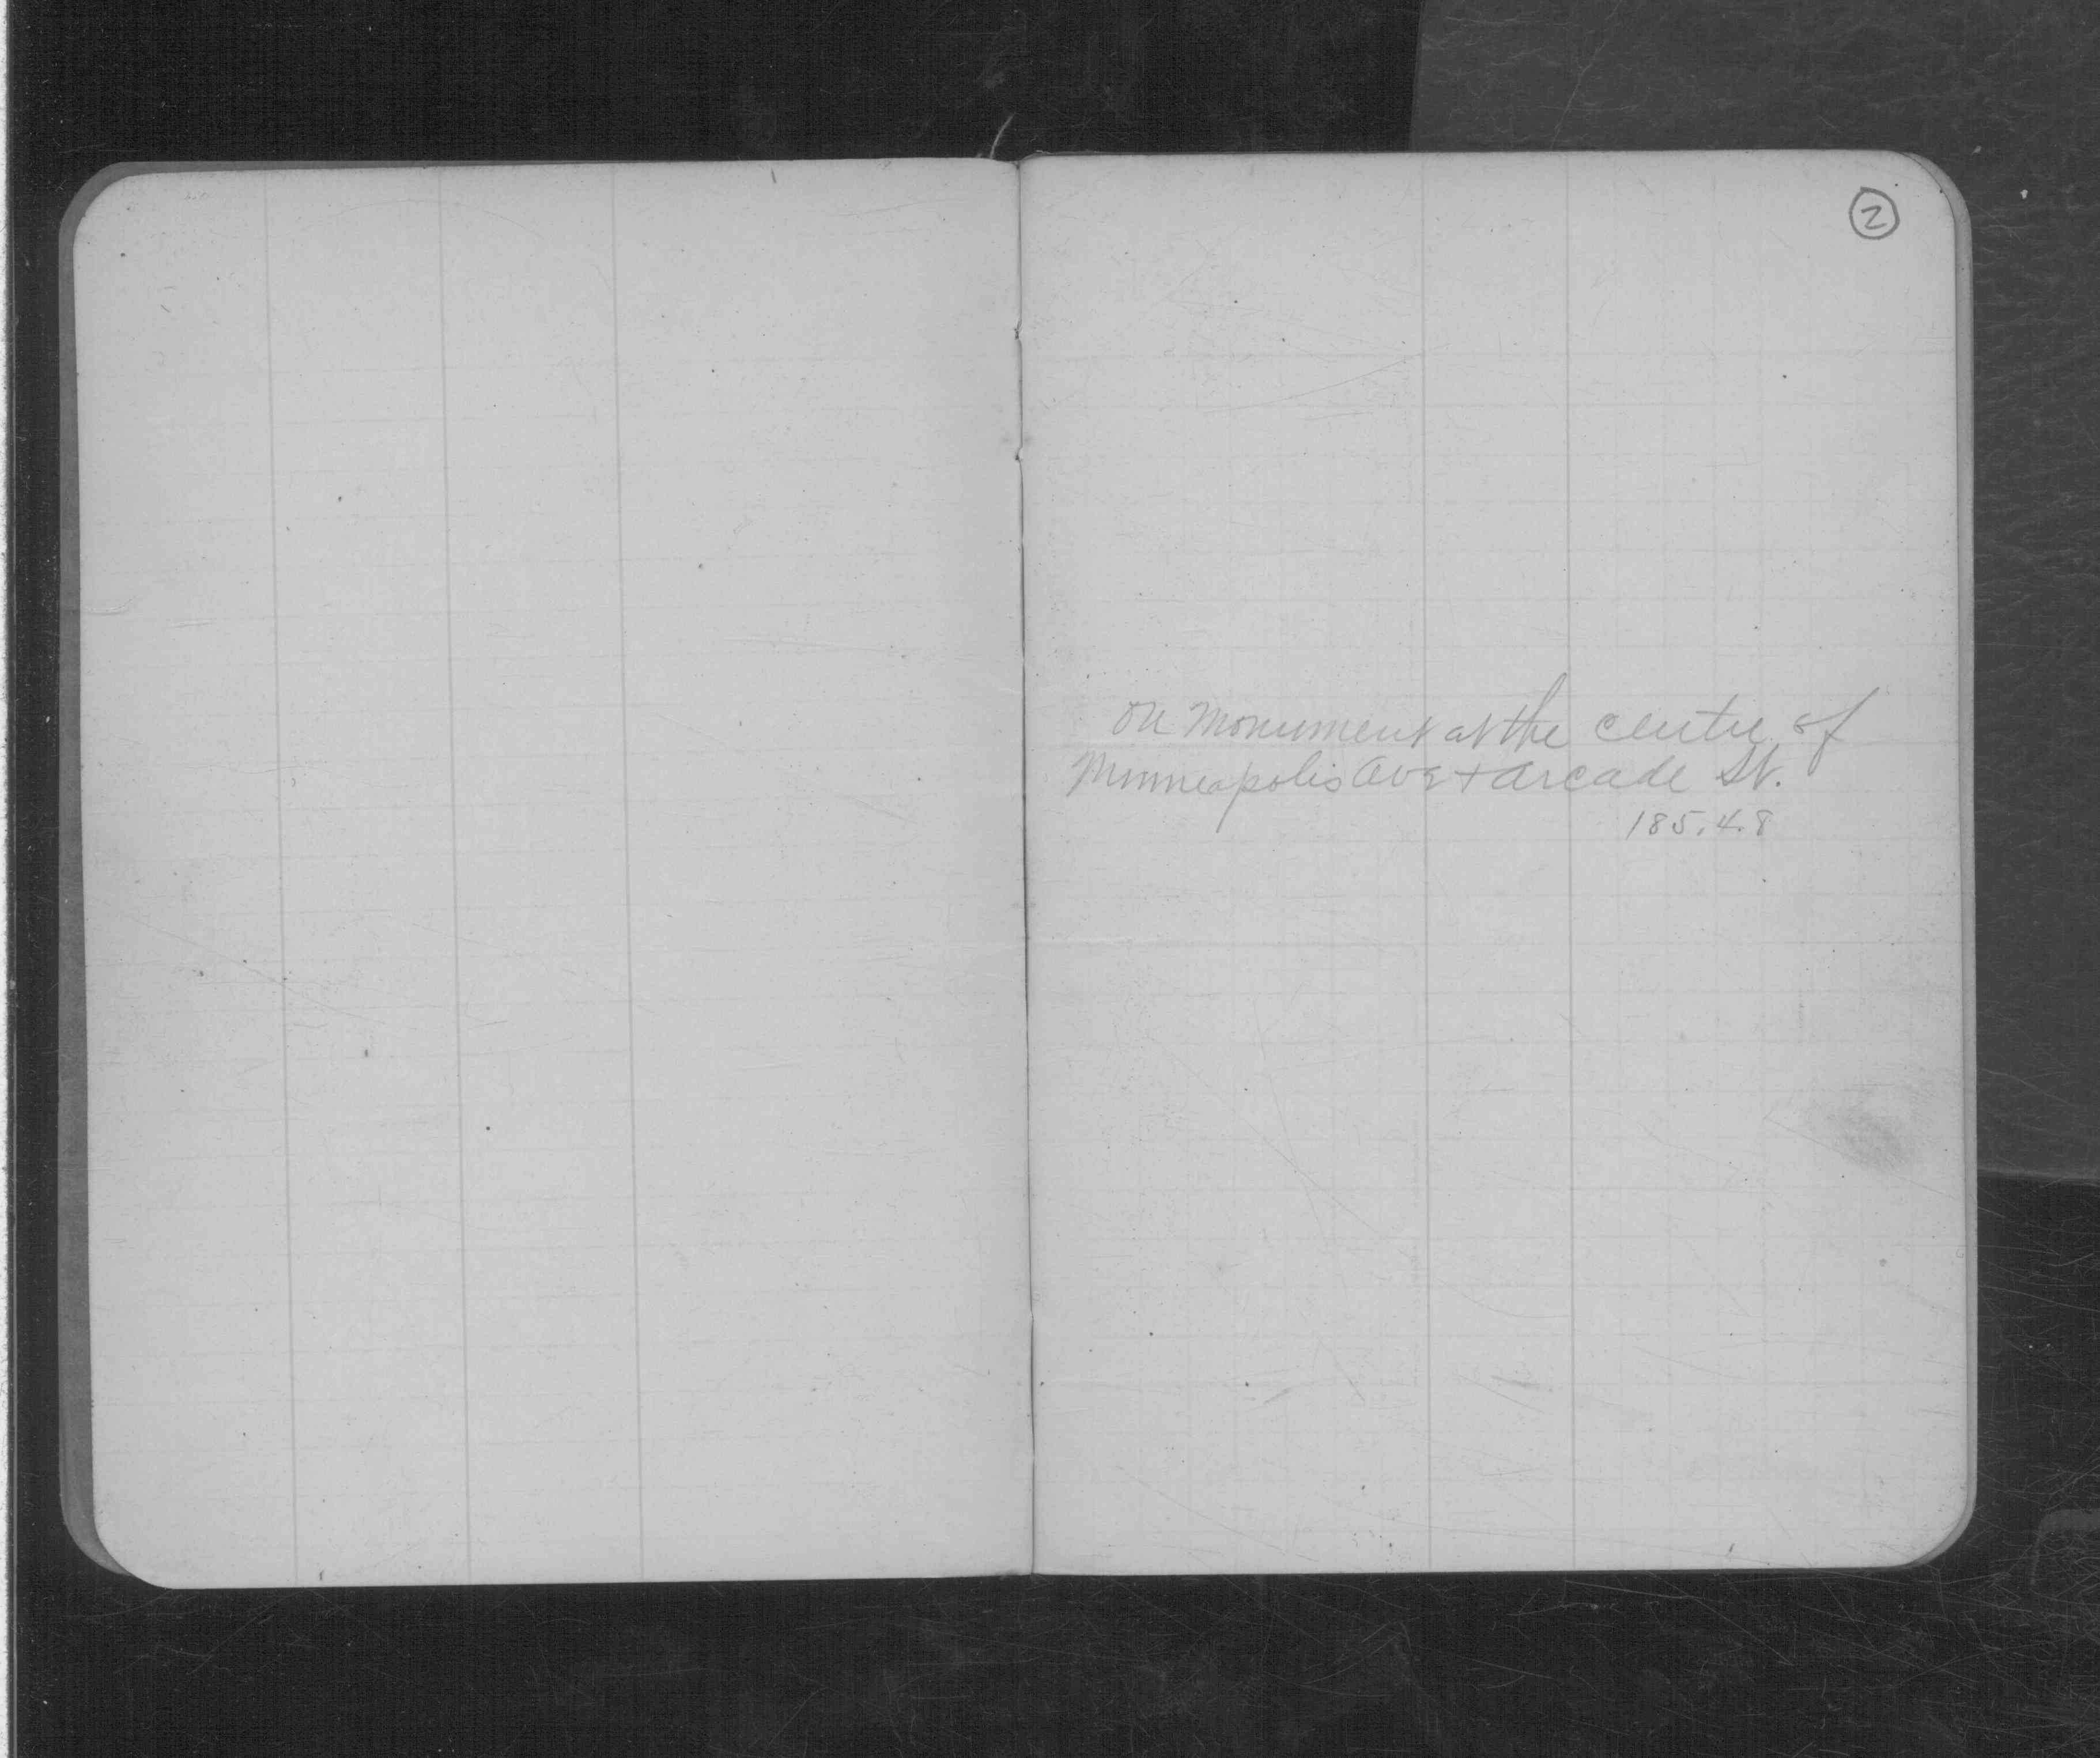 2
On Monument at the centre of
Minneapolis Ave + Arcade St.
185.4.8